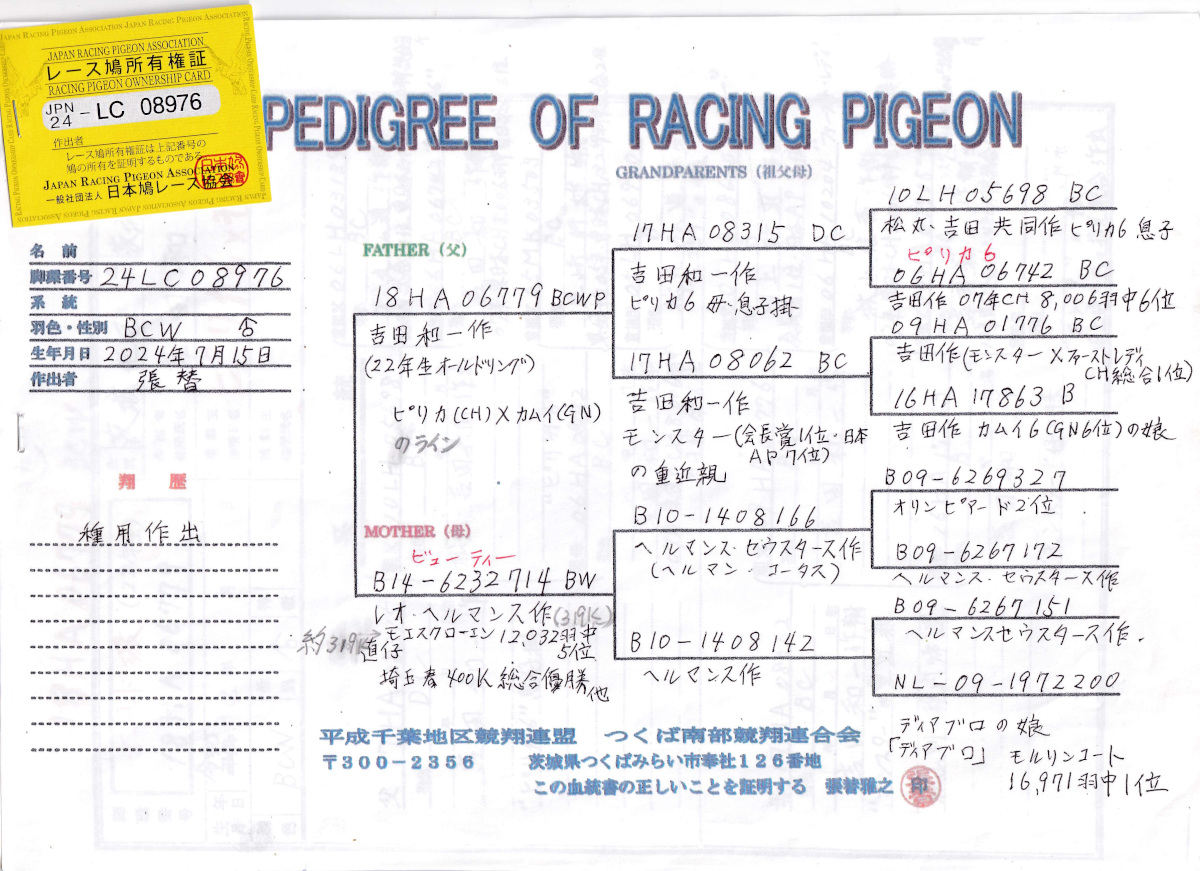 JAPAN RACING PIGEON ASSOCIATION
レース鳩所有権証
RACING PIGEON OWNERSHIP CARD
JPN
24 - LC 08976
作出者
レース鳩所有権証は上記番号の
鳩の所有を証明するものである
JAPAN RACING PIGEON ASSOCIATION
一般社団法人 日本鳩レース協会
PEDIGREE OF RACING PIGEON
GRANDPARENTS (祖父母)
名前
脚環番号 24LC08976
系統
羽色・性別 BCW
生年月日 2024年7月15日
作出者 張替
翔歴
種用作出
FATHER (父)
18HA06779 BCWP
吉田和一作
(22年生オールドリング)
ピリカ(CH)Xカムイ(GN)
のライン
MOTHER (母)
ビューティー
B14-6232714 BW
レオ・ヘルマンス作(319K)
約319K モエスクローエン12,032羽中
5位
直仔
埼玉春400K総合優勝
他
17HA08315 DC
吉田和一作
ピリカ6 母・息子掛
17HA08062 BC
吉田和一作
モンスター(会長賞1位・日本
AP7位)
の重近親
B10-1408166
ヘルマンス・セウスタース作
(ヘルマン・コータス)
B10-1408142
ヘルマンス作
10LH05698 BC
松丸、吉田 共同作 ピリカ6 息子
ピリカ6
06HA06742 BC
吉田作 07年CH 8,006羽中6位
09HA01776 BC
吉田作(モンスターXファーストレディ
CH総合1位)
16HA17863 B
吉田作 カムイ6(GN6位)の娘
B09-6269327
オリンピアード2位
B09-6267172
ヘルマンス・セウスタース作
B09-6267151
ヘルマンスセウスタース作.
NL-09-1972200
ディアブロの娘
「ディアブロ」 モルリンコート
16,971羽中1位
平成千葉地区競翔連盟 つくば南部競翔連合会
〒300-2356 茨城県つくばみらい市奉社126番地
この血統書の正しいことを証明する 張替雅之 印